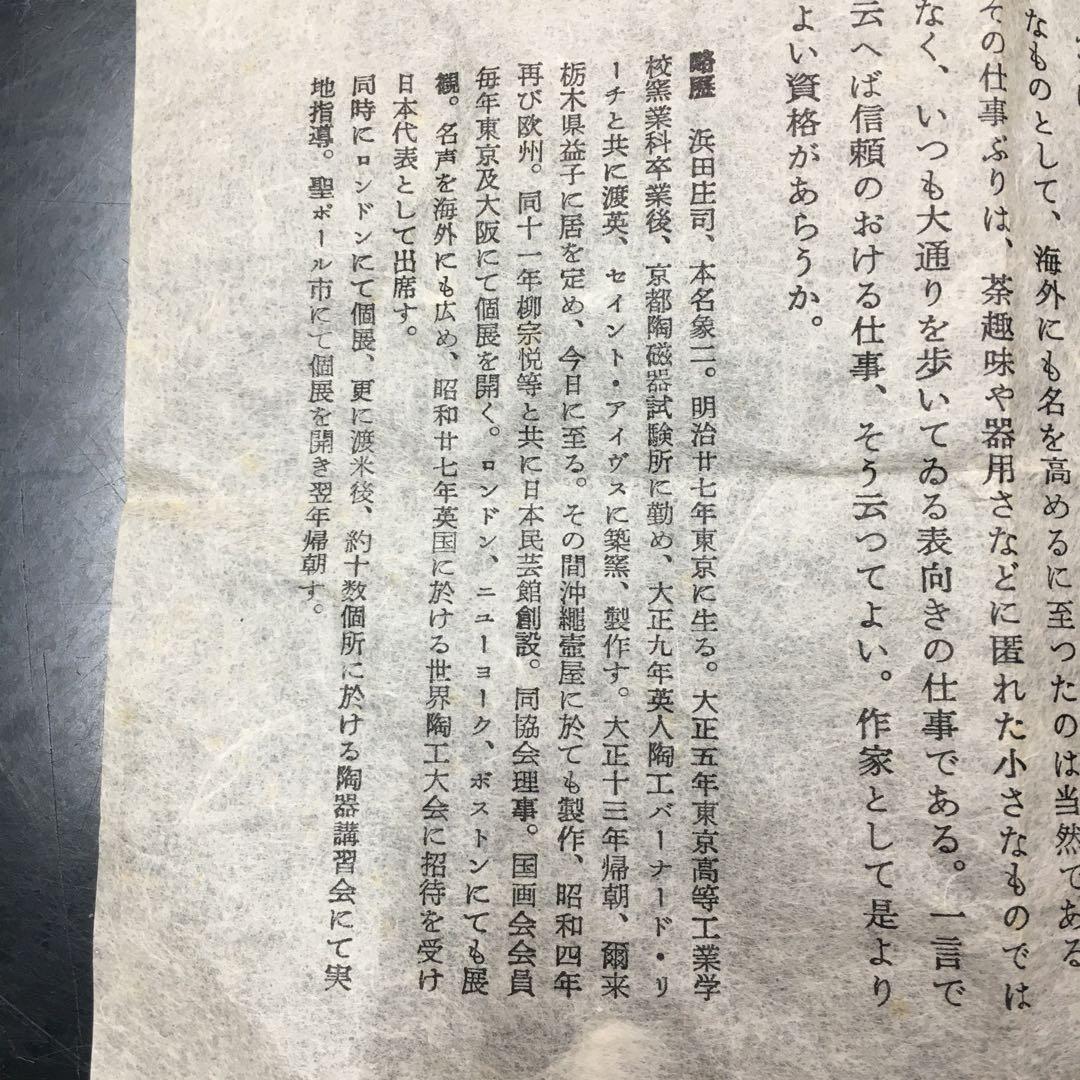 なものとして、海外にも名を高めるに至つたのは当然である
その仕事ぶりは、茶趣味や器用さなどに匿れた小さなものでは
なく、いつも大通りを歩いてゐる表向きの仕事である。一言で
云へば信頼のおける仕事、そう云つてよい。作家として是より
よい資格があらうか。
略歴　浜田庄司、本名象二。明治廿七年東京に生る。大正五年東京高等工業学
校窯業科卒業後、京都陶磁器試験所に勤め、大正九年英人陶工バーナード・リ
ーチと共に渡英、セイント・アイヴスに築窯、製作す。大正十三年帰朝、爾来
栃木県益子に居を定め、今日に至る。その間沖縄壺屋に於ても製作、昭和四年
再び欧州。同十一年柳宗悦等と共に日本民芸館創設。同協会理事。国画会会員
毎年東京及大阪にて個展を開く。ロンドン、ニューヨーク、ボストンにても展
観。名声を海外にも広め、昭和廿七年英国に於ける世界陶工大会に招待を受け
日本代表として出席す。
同時にロンドンにて個展、更に渡米後、約十数個所に於ける陶器講習会にて実
地指導。聖ポール市にて個展を開き翌年帰朝す。